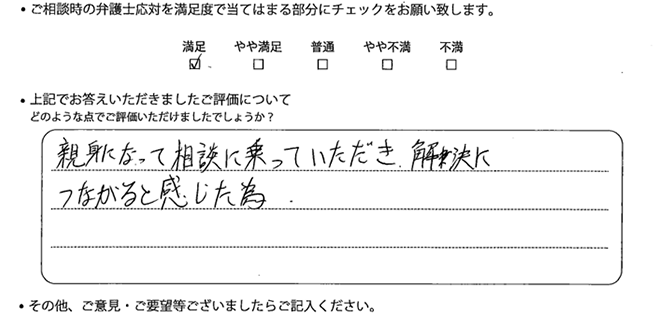 ・ご相談時の弁護士応対を満足度で当てはまる部分にチェックをお願い致します。
満足 やや満足 普通 やや不満 不満
☑ □ □ □ □
・上記でお答えいただきましたご評価について
どのような点でご評価いただけましたでしょうか？
親身になって相談に乗っていただき、解決に
つながると感じた為.
・その他、ご意見・ご要望等ございましたらご記入ください。